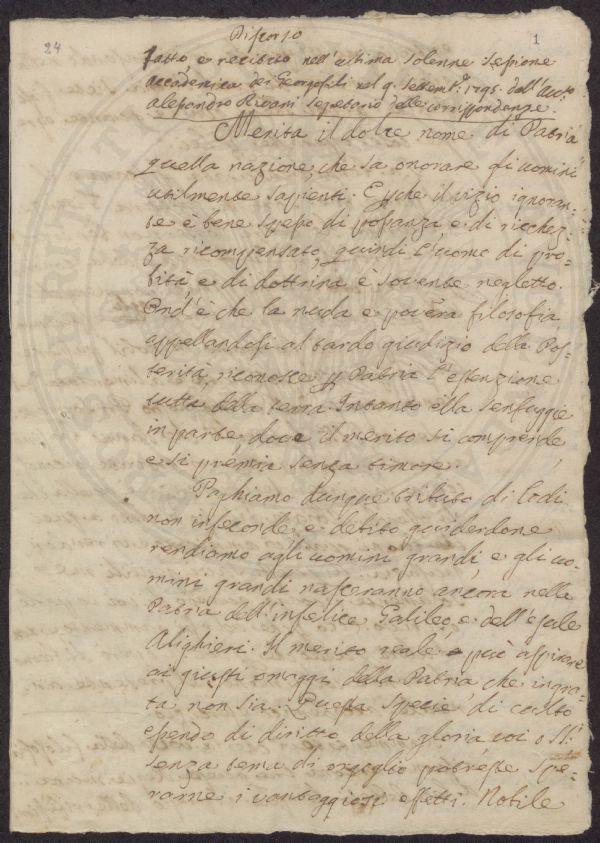 24
1
Discorso
Fatto e recitato nell'ultima solenne sessione
accademica dei Georgofili nel 9. Settemb.e 1795. dall'Avv.to
Alessandro Rivani segretario delle corrispondenze.
Merita il dolce nome di Patria
quella nazione, che sa onorare gli uomini
utilmente sapienti. E poiche il vizio ignoran-
te è bene spesso di possanza e di ricchez-
za ricompensato, quindi l'uomo di pro-
bità e di dottrina è sovente negletto.
Ond'è che la nuda e povera filosofia
appellandosi al tardo giudizio della Pos-
terità, riconosce p Patria l'estenzione
tutta della terra. Intanto ella sen fugge
in parte, dove il merito si comprende,
e si premia senza timore.
Paghiamo dunque tributo di lodi
non infeconde, e debito guiderdone
rendiamo agli uomini grandi, e gli uo-
mini grandi nasceranno ancora nella
Patria dell'infelice Galileo, e dell'esule
Alighieri. Il merito reale può aspirare
ai giusti omaggi della Patria che ingra-
ta non sia. Questa specie di culto
essendo di diritto della gloria voi o SS.
senza tema di orgoglio potreste spe-
rarne i vantaggiosi effetti. Nobile